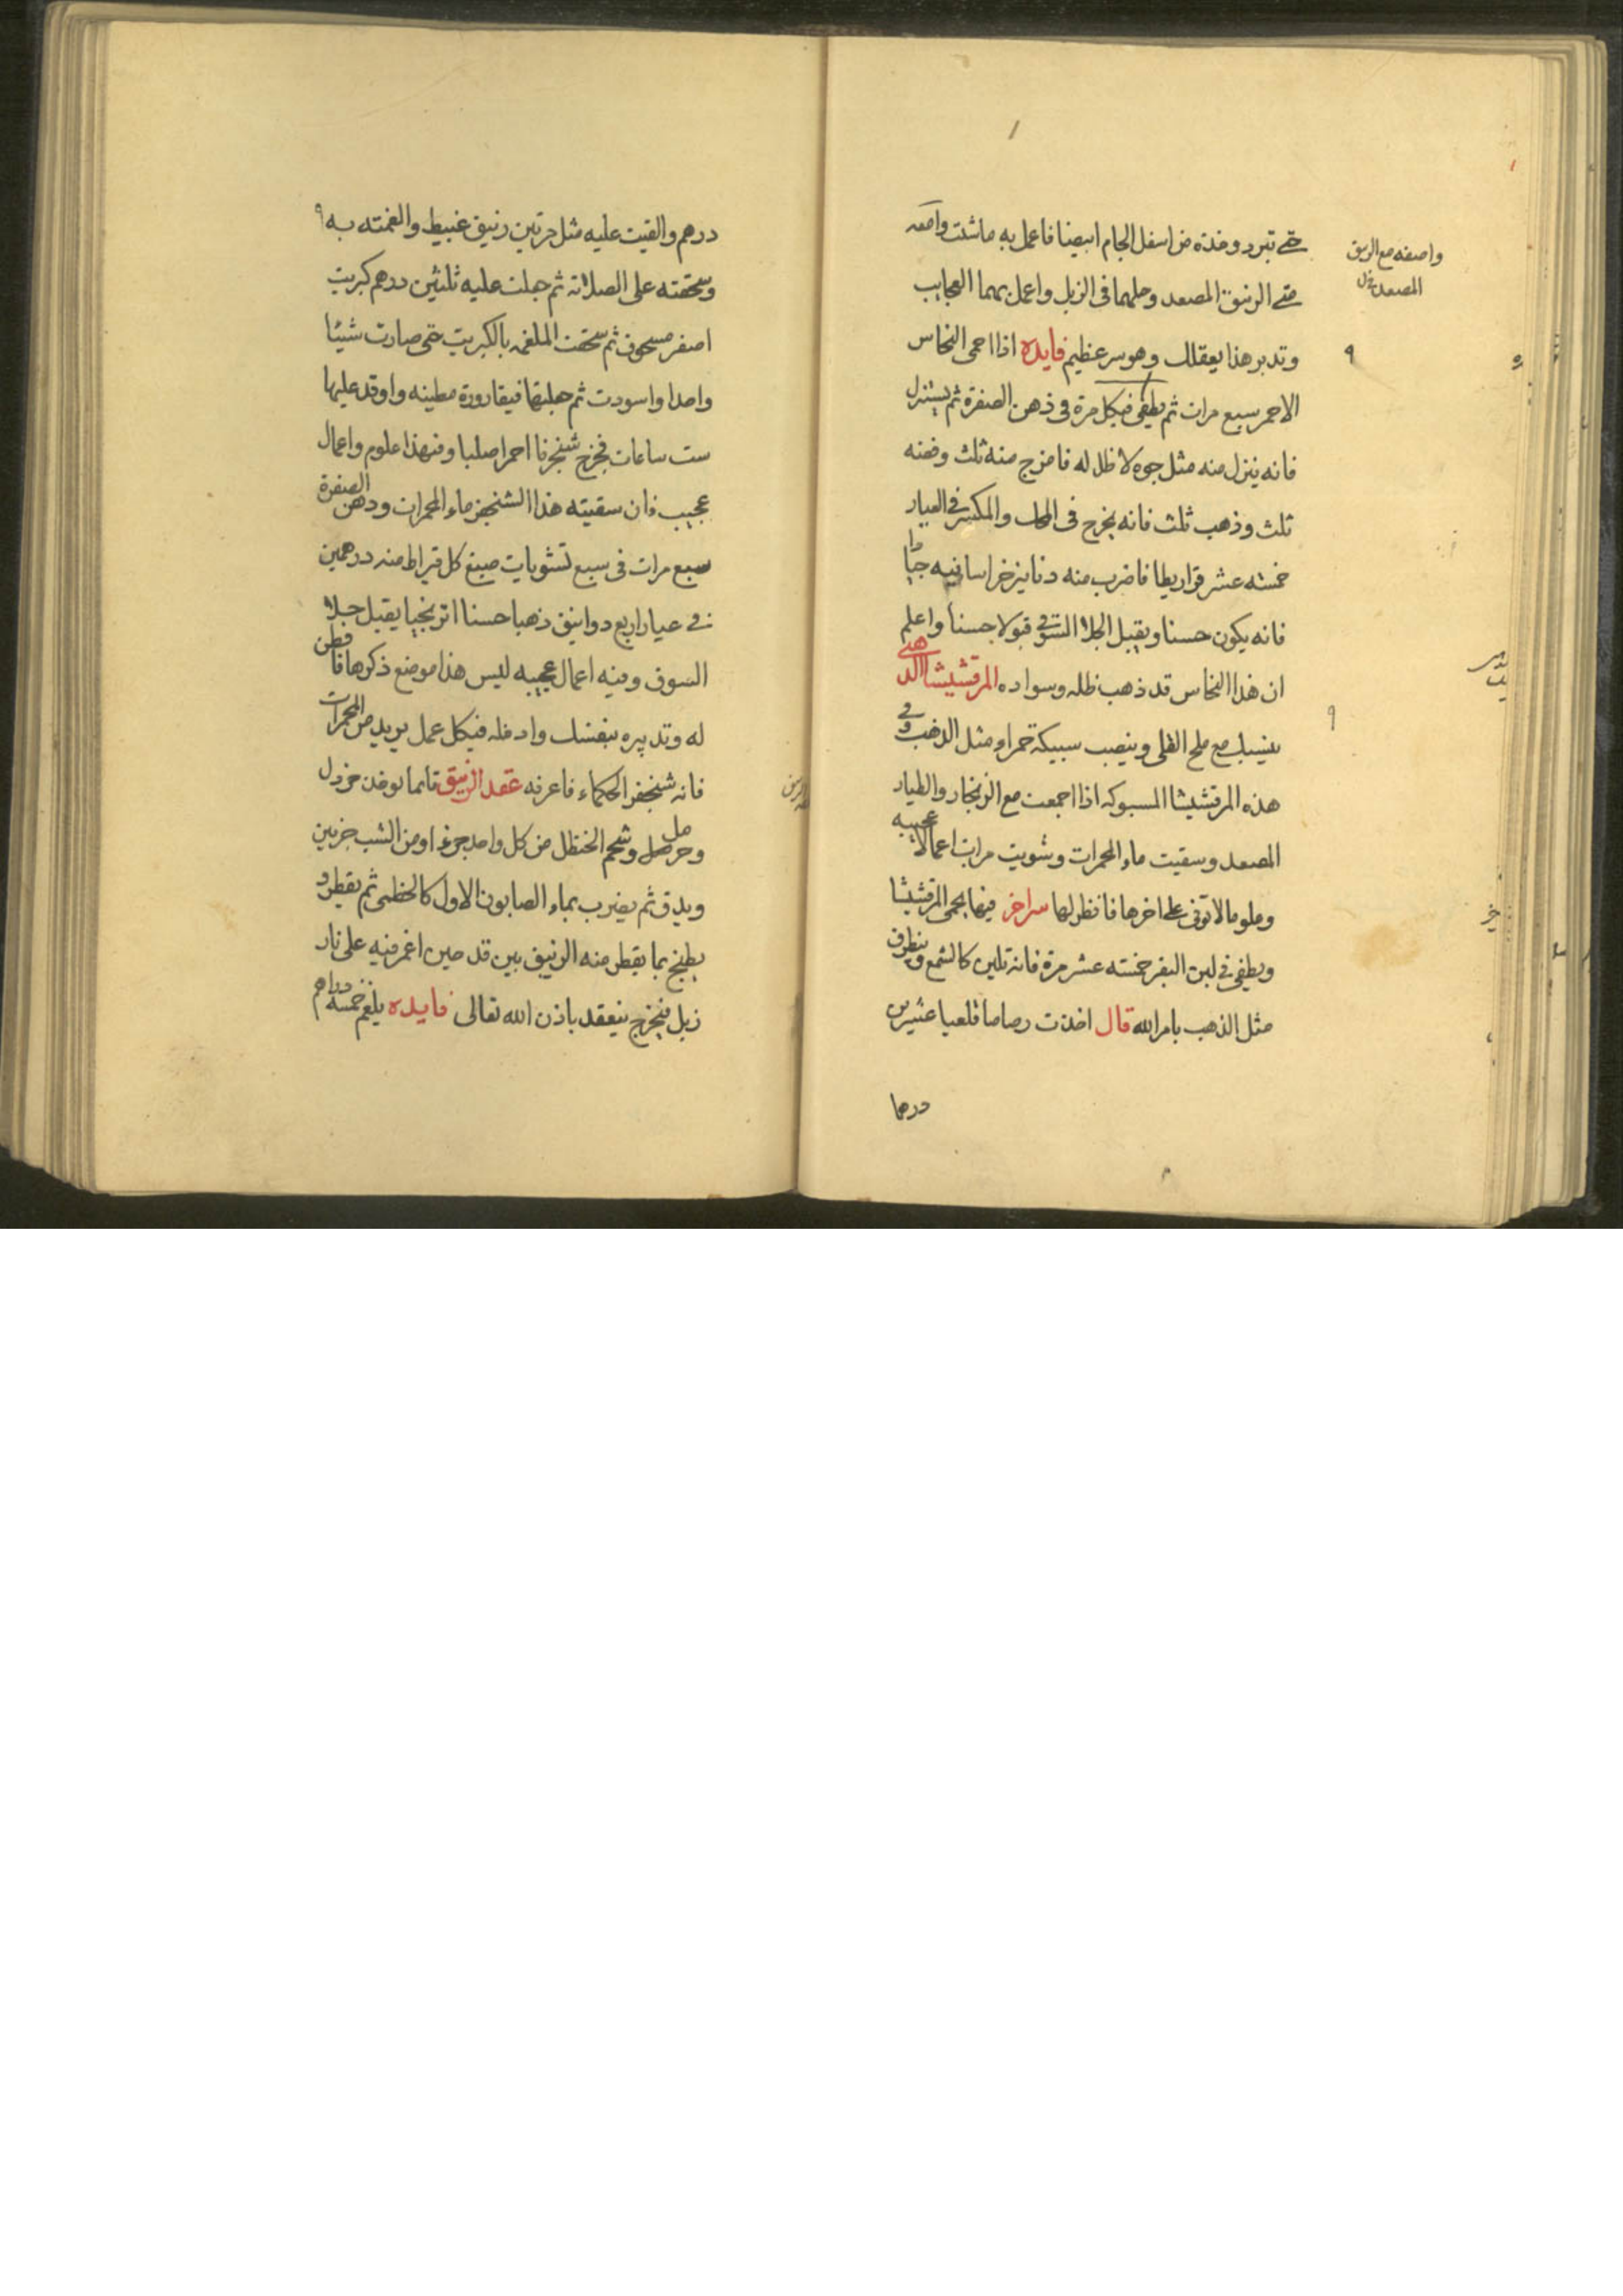 حتى تبرد وخذه من اسفل الجام ابيضا فاعمل به ما شئت وامعه
متى الزيبق المصعد وحلهما فى الزبل واعمل بهما العجايب
وتدبر هذا بعقلك وهو سر عظيم فايده اذا احمى النحاس
الاحمر سبع مرات ثم يطفى فيكل مرة فى دهن الصفرة ثم يستنزل
فانه ينزل منه مثل جوه لا ظل له فامزج منه ثلث وفضه
ثلث وذهب ثلث فانه يخرج فى الحك والمكسر فى العيار
خمسه عشر قراريطا فاضرب منه دنانيز خراسانيه جيا
فانه يكون حسنا ويقبل الجلا السوقى قبولا حسنا واعلم
ان هذا النحاس قد ذهب ظله وسواده المرقشيشا الذهبى
ينسبك مع ملح القلى وينصب سبيكة حمراء مثل الذهب وفى
هذه المرقشيشا المسبوكه اذا اجمعت مع الزنجار والطيار
المصعد وسقيت ماء المحمرات وشويت مرات اعمالا عجيبه
وعلوما لا توتى على اخرها فانظر لها سر اخر فيها يحمى المرقشيثا
ويطفى فى لبن البقر خمسته عشر مرة فانه تلين كالشمع وينطرق
مثل الذهب بامر الله قال اخذت رصاصا قلعيا عشرين
درهما
واصفه مع الزيبق
المصعد
درهم والقيت عليه مثل مرتين زنيق غبيط والغمته به
وسحقته على الصلاته ثم جعلت عليه ثلثين درهم كبريت
اصفر مسحوق ثم سحقت الملغمه بالكبريت حتى صارت شيئا
واحدا واسودت ثم جعلتها فيقارورة مطينه واوقد عليها
ست ساعات فخرج شنجرفا احمرا صلبا وفيهذا علوم واعمال
عجيب فان سقيته هذا الشنجفر ماء المحمرات ودهن الصفرة
سبع مرات فى سبع تشويات صبغ كل قيراط منه درهمين
فى عيار اربع دوانيق ذهبا حسنا اترنجيا يقبل جلا
السوق وفيه اعمال عجيبه ليس هذا موضع ذكرها فافطن
له وتدبره بنفسك وادخله فيكل عمل يريد من المحمرات
فانه شنجفر الحكماء فاعرفه عقد الزنيق قايما يوخذ خردل
وحرمل وشحم الحنظل من كل واحد جزءا ومن الشب جزيين
ويدق ثم يضرب بماء الصابون الاول كالخطمى ثم يقطر و
يطبخ بما يقطر منه الزنيق بين قدحين اغمر فيه على نار
زبل فيخرج ينعقد باذن الله تعالى فايده يلغم خمسه دراهم